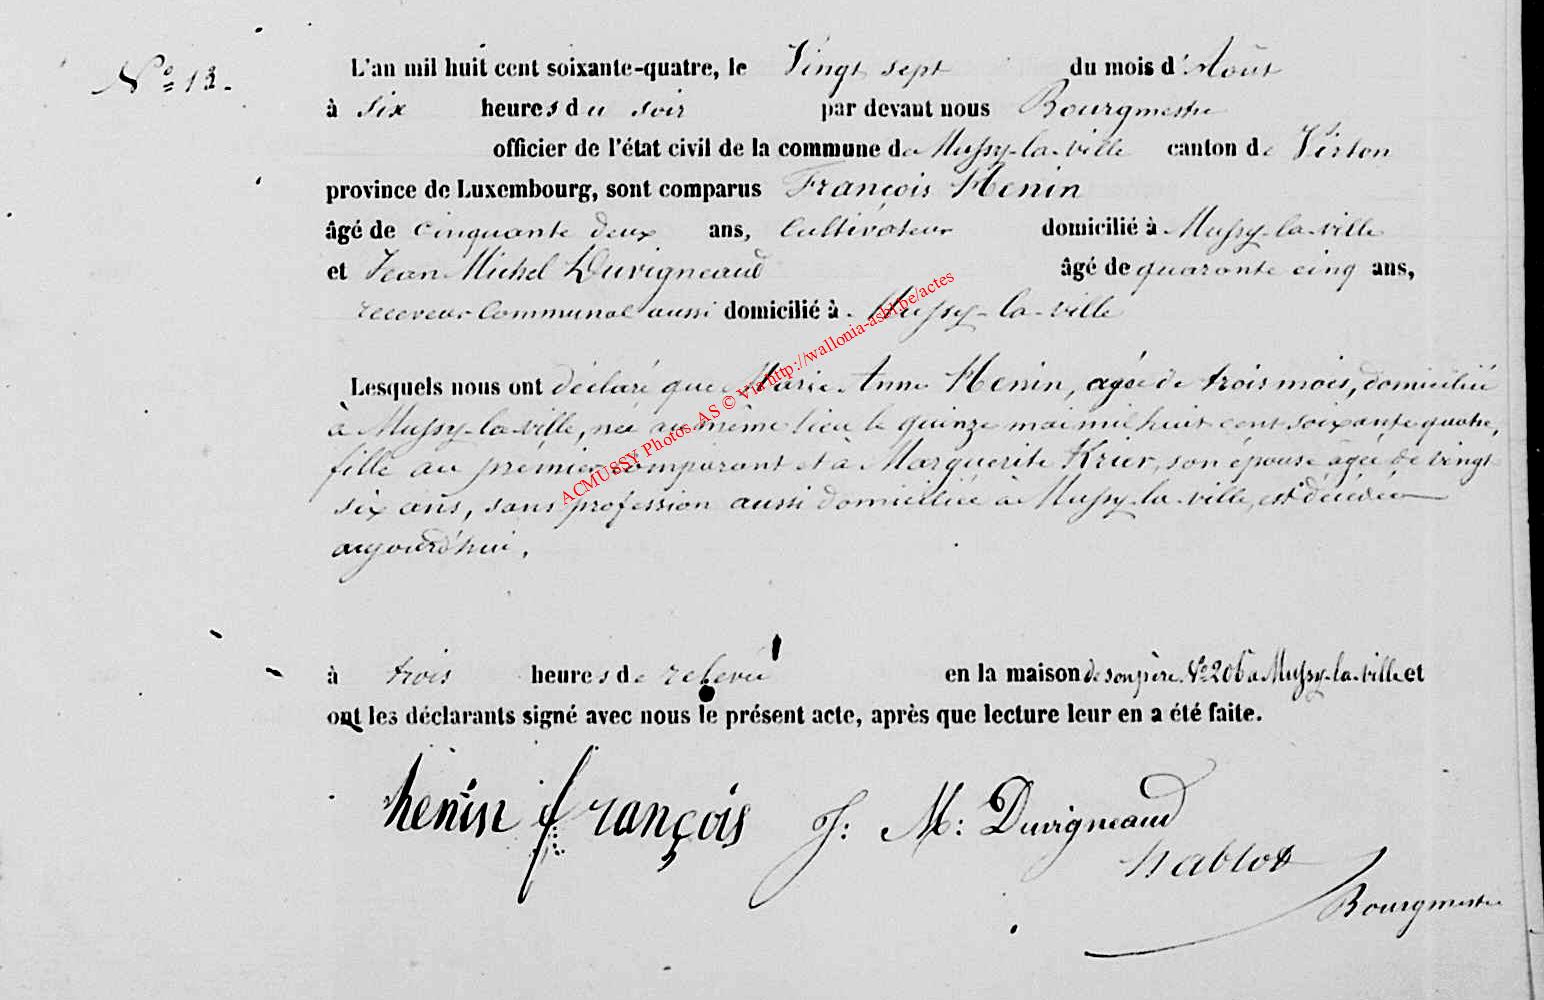 N° 13.
L'an mil huit cent soixante-quatre, le Vingt sept du mois d'Août
à six heures du soir par devant nous Bourgmestre
officier de l'état civil de la commune de Mussy-la-ville canton de Virton
province de Luxembourg, sont comparus François Henin
âgé de cinquante deux ans, cultivateur domicilié à Mussy-la-ville
et Jean Michel Duvigneaud âgé de quarante cinq ans,
receveur communal aussi domicilié à Mussy-la-ville
Lesquels nous ont déclaré que Marie Anne Henin, agée de trois mois, domiciliée
à Mussy-la-ville, née au même lieu le quinze mai mil huit cent soixante quatre,
fille au premier comparant et à Marguerite Krier, son épouse agée de vingt
six ans, sans profession aussi domiciliée à Mussy-la-ville, est décédée
aujourd'hui,
à trois heures de relevée en la maison de son père N° 206 à Mussy-la-ville et
ont les déclarants signé avec nous le présent acte, après que lecture leur en a été faite.
henin françois J: M: Duvigneaud
Bourgmestre
ACMUSSY Photos. AS © Via http://wallonia-asbl.be/actes